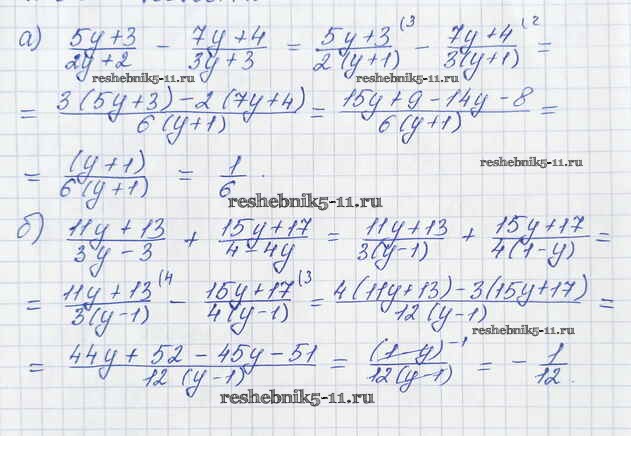 а) (5y+3)/(2y+2) - (7y+4)/(3y+3) = (5y+3)/(2(y+1)) (3 - (7y+4)/(3(y+1)) (2 =
reshebnik5-11.ru reshebnik5-11.ru
= (3(5y+3)-2(7y+4))/(6(y+1)) = (15y+9-14y-8)/(6(y+1)) =
reshebnik5-11.ru
= (y+1)/(6(y+1)) = 1/6.
reshebnik5-11.ru
б) (11y+13)/(3y-3) + (15y+17)/(4-4y) = (11y+13)/(3(y-1)) + (15y+17)/(4(1-y)) =
= (11y+13)/(3(y-1)) (4 - (15y+17)/(4(y-1)) (3 = (4(11y+13)-3(15y+17))/(12(y-1)) =
reshebnik5-11.ru
= (44y+52-45y-51)/(12(y-1)) = (1-y) -1/(12(y-1)) = -1/12.
reshebnik5-11.ru